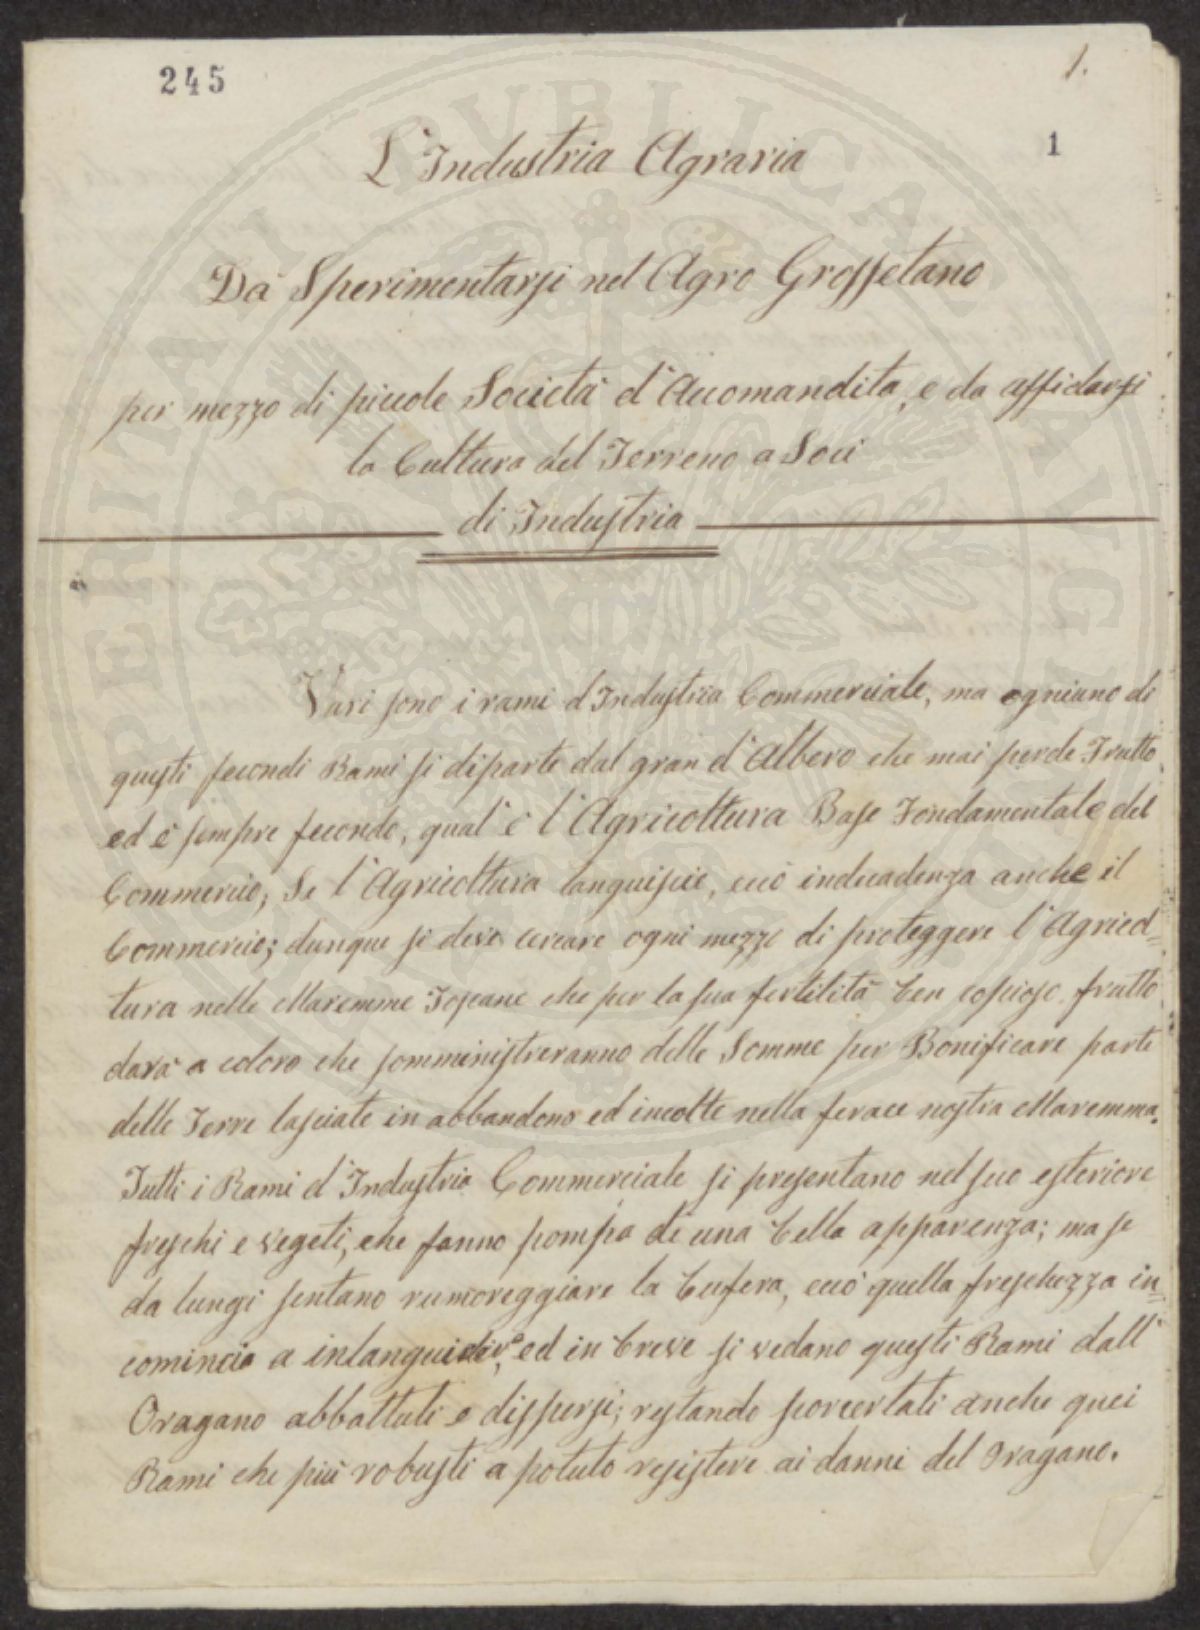 245
1.
1
L'Industria Agraria
Da Sperimentarsi nel Agro Grossetano
per mezzo di piccole Società d'Accomandita, e da affidarsi
la Cultura del Terreno a Soci
di Industria
Vari sono i rami d'Industria Commerciale, ma ogniuno di
questi fecondi Rami si diparte dal gran d'Albero che mai perde Frutto
ed è sempre fecondo, qual'è l'Agricoltura Base Fondamentale del
Commercio; Se l'Agricoltura languiscie, ecco indecadenza anche il
Commercio; dunque si deve cercare ogni mezzo di proteggere l'Agricol=
tura nelle Maremme Toscane che per la sua fertilità ben copioso frutto
darà a coloro che somministreranno delle Somme per Bonificare parte
delle Terre lasciate in abbandono ed incolte nella ferace nostra Maremma.
Tutti i Rami d'Industria Commerciale si presentano nel suo esteriore
freschi e vegeti, che fanno pompa di una bella apparenza; ma se
da lungi sentano rumoreggiare la bufera, ecco quella freschezza in=
comincia a inlanguidire, ed in breve si vedano questi Rami dall'
Oragano abbattuti e dispersi; restando sconcertati anche quei
Rami che più robusti a potuto resistere ai danni del Oragano.
PERITAT PVBLICAE AVG